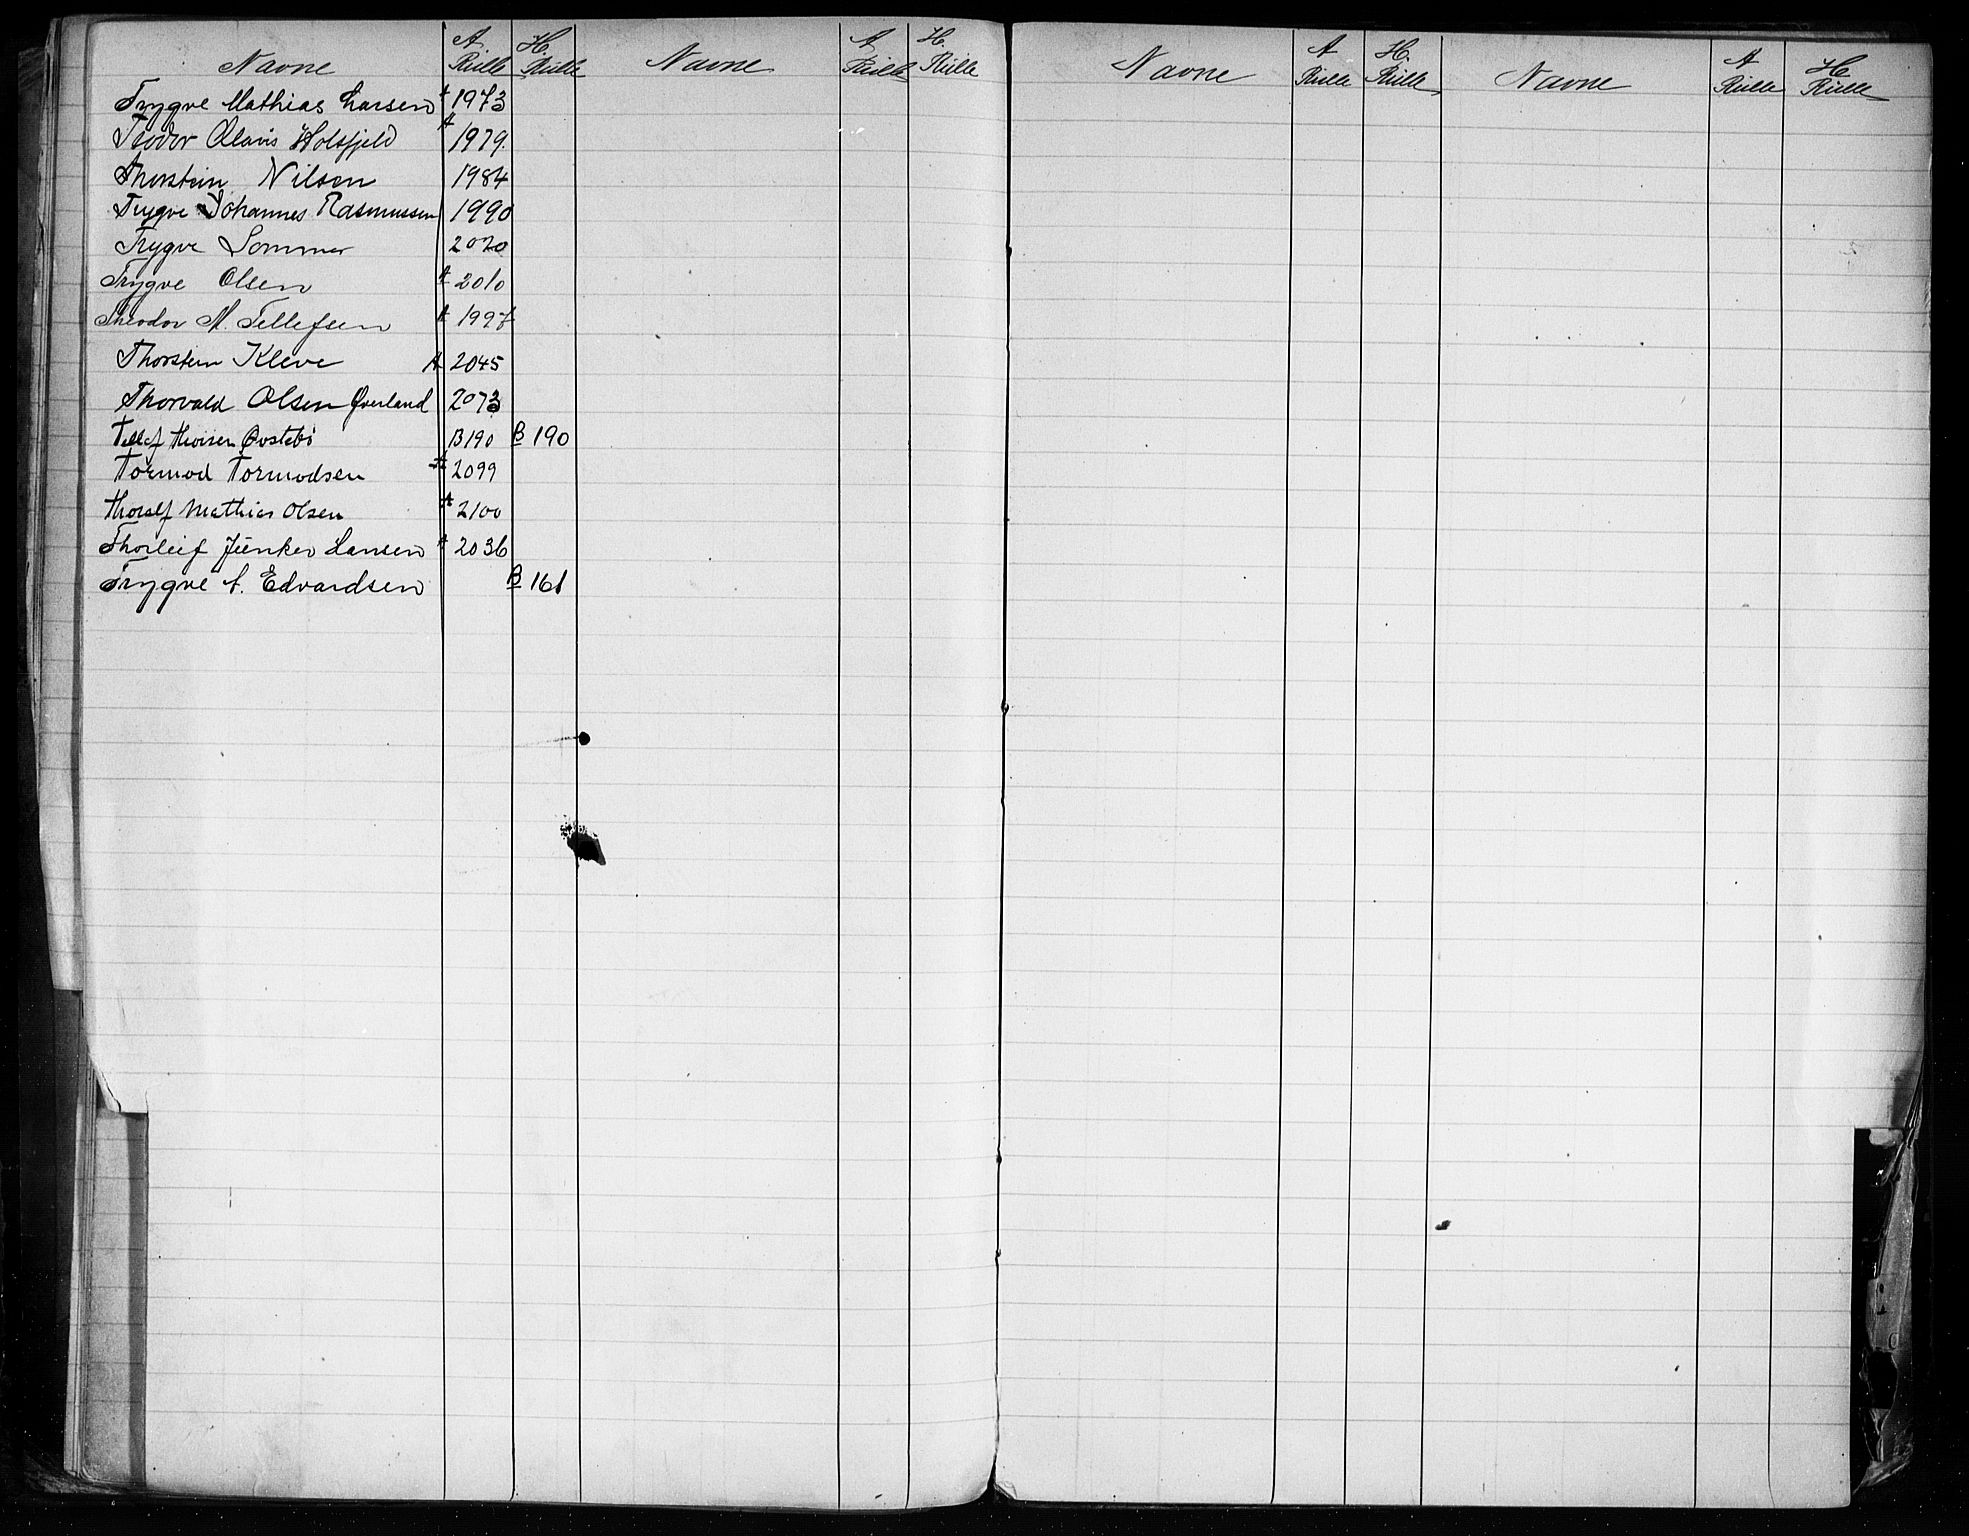 Navne A Rulle H. Rulle Navne A Rulle H. Rulle Navne A Rulle H. Rulle Navne A Rulle H. Rulle
Trygve Mathias Larsen A 1973
Teodor Olavis Holtsfjeld A 1979.
Thorstein Nilsen 1984
Trygve Johannes Rasmussen 1990
Trygve Sommer 2020
Trygve Olsen A 2010
Theodor M. Tellefsen A 1997
Thorstein Kleve A 2045
Thorvald Olsen Øverland 2073
Tellef Thorsen B190 B 190
Tormod Tormodsen A 2099
Thoralf Mathias Olsen A 2100
Thorleif Junker Hansen A 2036
Trygve A. Edvardsen B 161